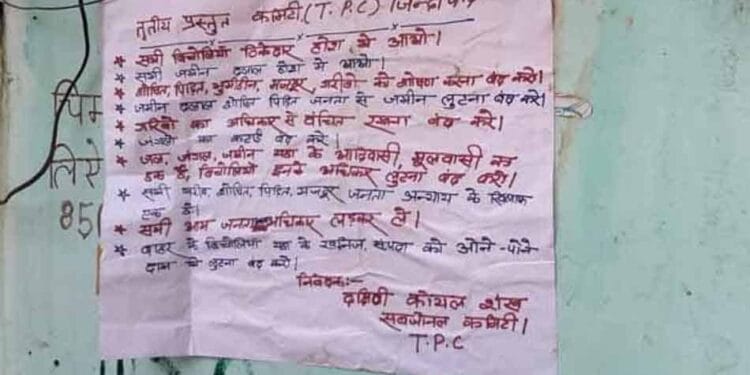 तृतीय प्रस्तुत कमिटी (T.P.C) जिन्दाबाद
* सभी बिचोलियों ठिकेदार होश मे आओ।
* सभी जमीन दलाल होश मे आओ।
* शोषित, पिड़ित, भुमिहीन, मजदूर, गरीबों का शोषण करना बंद करो।
* जमीन दलाल शोषित पिड़ित जनता से जमीन लुटना बंद करो।
* गरिबों का अधिकार से वंचित रखना बंद करो।
* जंगलो का कटाई बंद करो।
* जल, जंगल, जमीन यहा के आदिवासी, मूलवासी का
हक है, बिचोलियों इनके अधिकार लुटना बंद करो।
* सभी गरीब, शोषित, पिड़ित, मजदूर जनता अन्याय के खिलाफ
एक हो।
* सभी आम जनता अधिकार लड़कर लें।
* बाहर के बिचोलिया यहा के खनिज संपदा को औने-पौने
दाम मे लुटना बंद करो।
निवेदक:-
दक्षिणी कोयल शंख
सबजोनल कमिटी।
T.P.C
पिन
लिऐ
85